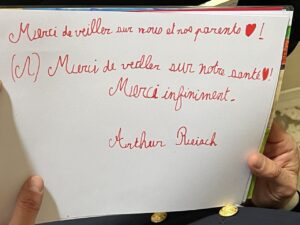 Merci de veiller sur nous et nos parents ❤!
(1) Merci de veiller sur notre santé❤!
Merci infiniment.
Arthur